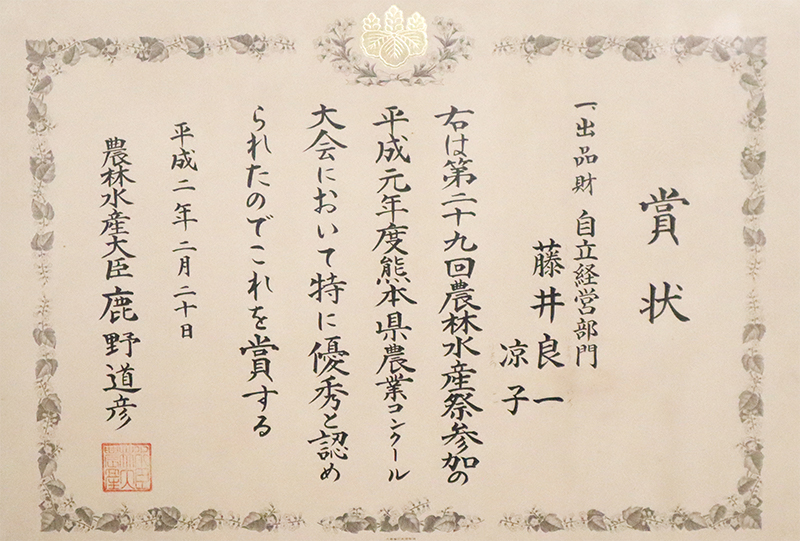 賞状
一、出品財 自立経営部門
藤井良一
凉子
右は第二十九回農林水産祭参加の
平成元年度熊本県農業コンクール
大会において特に優秀と認め
られたのでこれを賞する
平成二年二月二十日
農林水産大臣 鹿野道彦